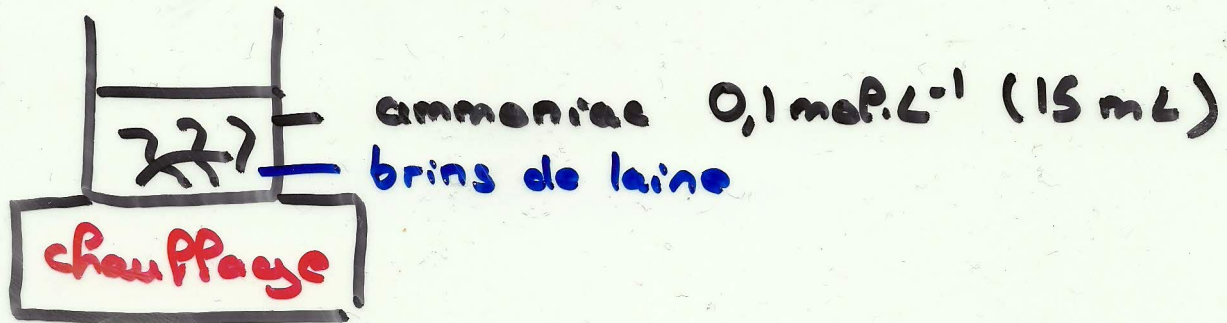 ammoniac 0,1 mol.L⁻¹ (15 mL)
brins de laine
chauffage